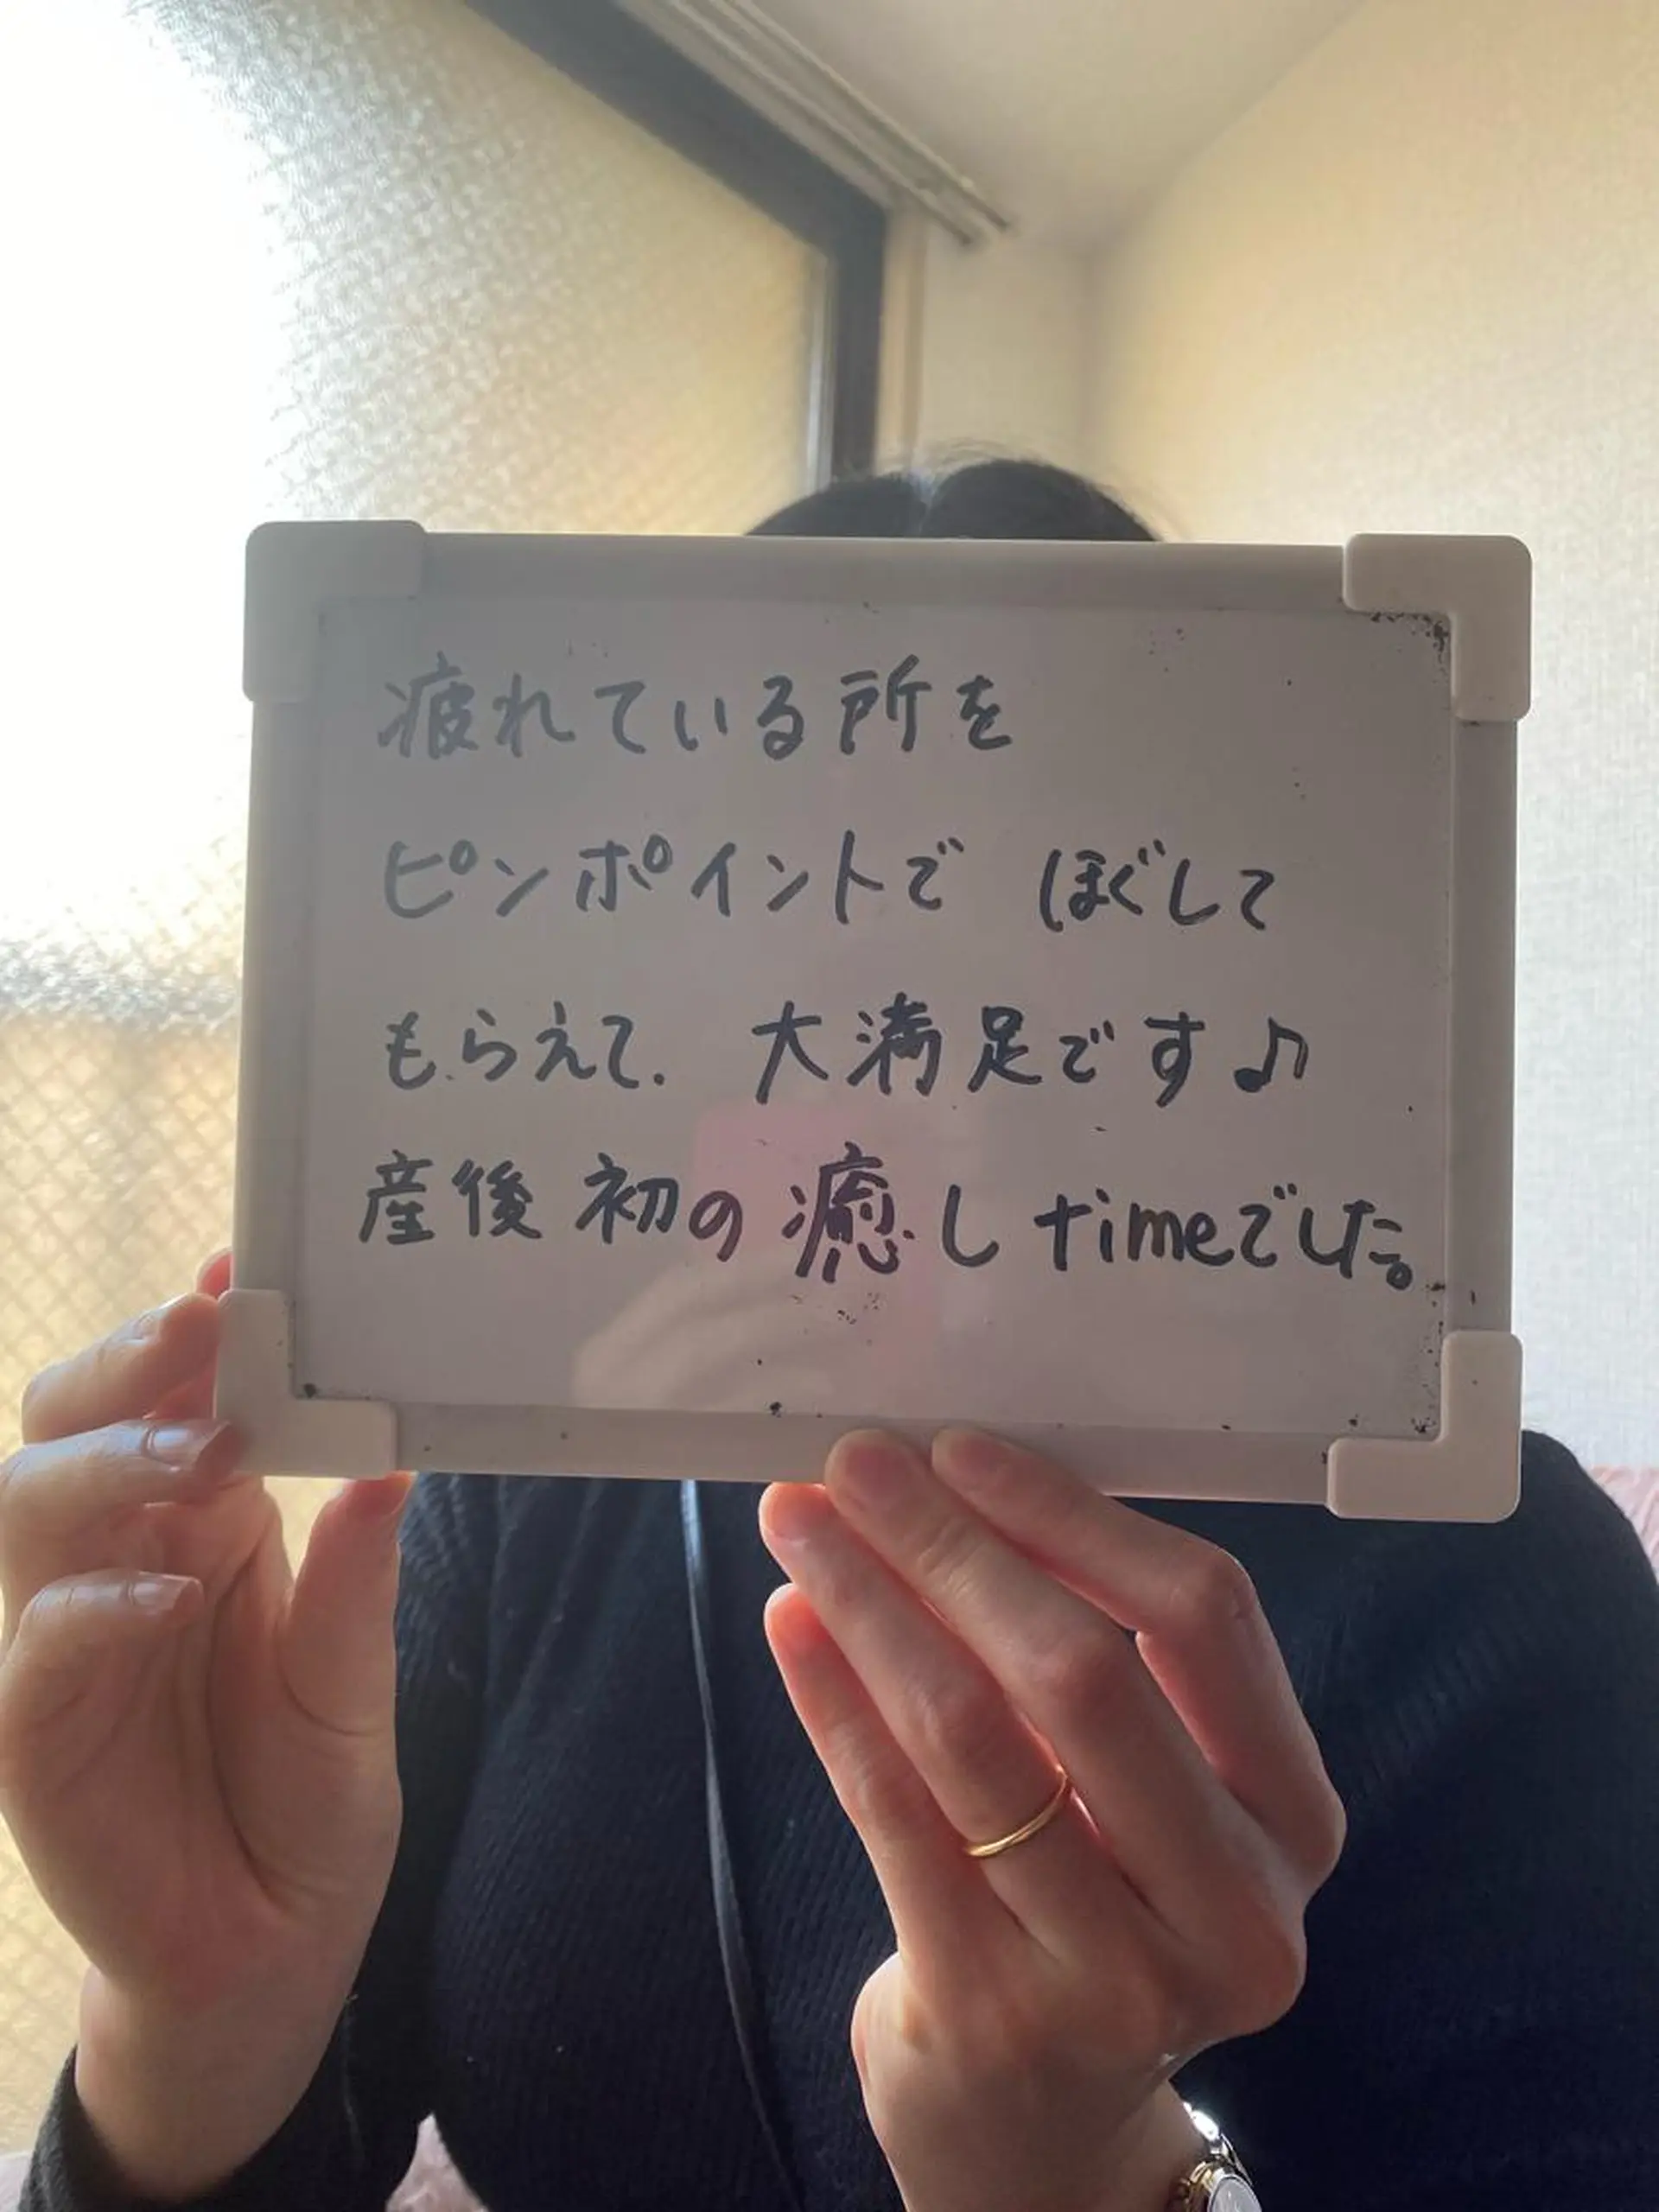 疲れている所を
ピンポイントで ほぐして
もらえて、大満足です♪
産後初の癒しtimeでした。